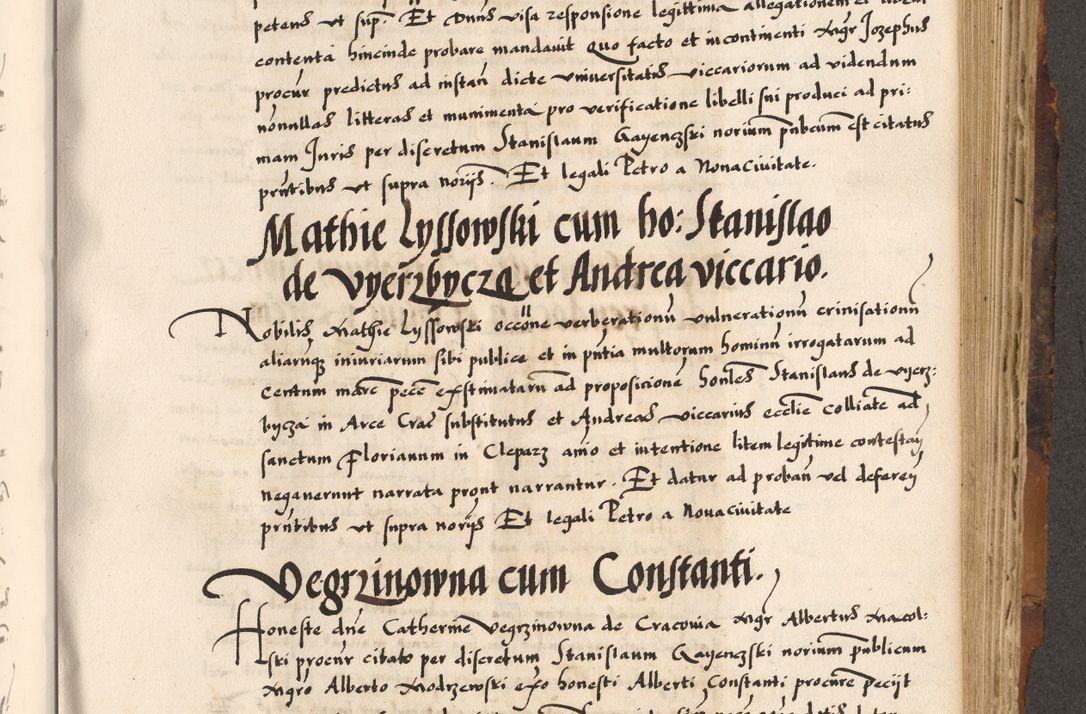 petens ut sup. Et Dnus visa responsione legittima allegationem et
contenta hincinde probare mandavit Quo facto et incontinenti Mgr Jozephus
procur predictus ad instan dicte vniuersitatis viccariorum ad videndum
nonnullas litteras et munimenta pro verificatione libelli sui produci ad pri-
mam Juris per discretum Stanislaum Gayenczski norium pubcum est citatus
pntibus ut supra norijs. Et legali Petro a Nonaciuitate.
Mathie Lyssowski cum ho: Stanislao
de vyerzbycza et Andrea viccario.
Nobilis Mathie Lyssowski occone verberationu vulnerationu crinisationu
aliarunq iniuriarum sibi publice et in pntia multorum hominu irrogatarum ad
centum marc pecc estimatarum ad proposicione honles Stanislaus de vyerz-
bycza in Arce Crac substitutus et Andreas viccarius ecclie colliate ad
sanctum Florianum in Cleparz aio et intentione litem legitime contestan
negauerunt narrata prout narrantur. Et datur ad proban vel deferen
pntibus ut supra norijs Et legali Petro a Nouaciuitate
Vegrzinowna cum Constanti.
Honeste dne Catherine vegrzinowna de Cracouia Mgr Albertus Maccol-
ski procur citato per discretum Stanislaum Gayenczski norium publicum
Mgro Alberto Modrzewski exo honesti Alberti Constanti procure fecijt